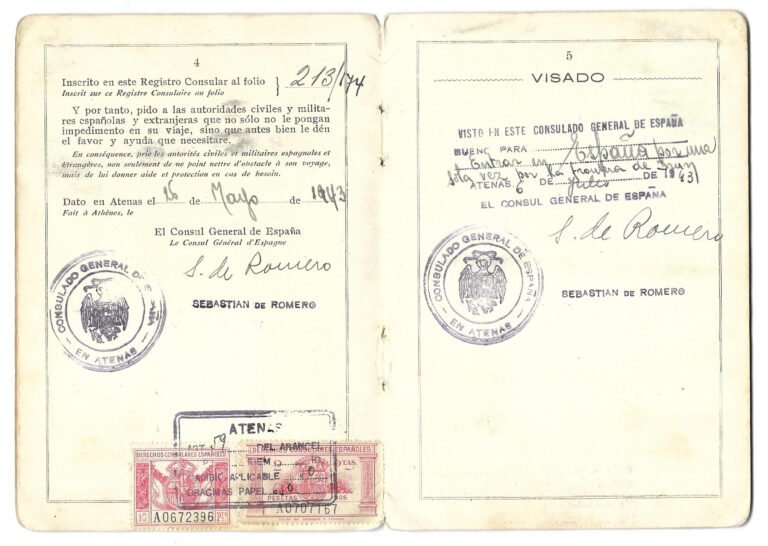 4
Inscrito en este Registro Consular al folio
Inscrit sur ce Registre Consulaire au folio
} 213/174
Y por tanto, pido a las autoridades civiles y milita-
res españolas y extranjeras que no sólo no le pongan
impedimento en su viaje, sino que antes bien le dén
el favor y ayuda que necesitare.
En conséquence, prie les autorités civiles et militaires espagnoles et
étrangères, non seulement de ne point mettre d'obstacle à son voyage,
mais de lui donner aide et protection en cas de besoin.
Dado en Atenas el 26 de Mayo de 1943
Fait à Athènes, le
El Consul General de España
Le Consul Général d'Espagne
S. de Romero
SEBASTIAN DE ROMERO
CONSULADO GENERAL DE ESPAÑA
– EN ATENAS –
ATENAS
ART 59 DEL ARANCEL
CAMBIO APLICABLE
DRACMAS PAPEL
DERECHOS CONSULARES ESPAÑOLES
10 A0672396 PTS
DERECHOS CONSULARES ESPAÑOLES
A0707167
5
VISADO
VISTO EN ESTE CONSULADO GENERAL DE ESPAÑA
BUENO PARA
Entrar en España por una
sola vez por la frontera de Irun
ATENAS 6 DE Julio DE 1943
EL CONSUL GENERAL DE ESPAÑA
S. de Romero
SEBASTIAN DE ROMERO
CONSULADO GENERAL DE ESPAÑA
– EN ATENAS –